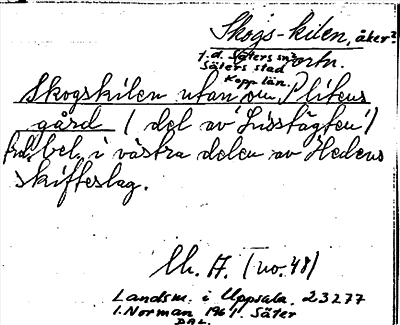 Skogs-kilen, åker?
f.d. Säters sn? ortn.
Säters stad
Kopp. län.
Skogskilen utan om Plitens
gård (del av Lisstägten)
bel. i västra delen av Hedens
skifteslag.
Uh. A. (no. 48)
Landsm. i Uppsala. 23277
I. Norman 1961. Säter
DAL.